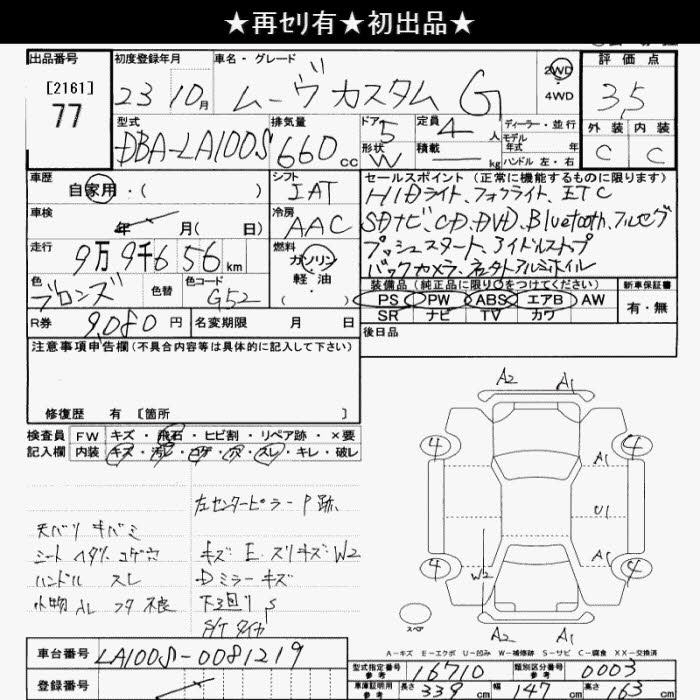 ★再セリ有★初出品★
出品番号 初度登録年月 車名・グレード 評価点
[2161]
77
23 10月 ムーヴカスタム G 2WD ・ 4WD 3.5
型式 排気量 ドア 5 定員 4 人 ディーラー・並行 外装 内装
DBA-LA100S 660cc 形状 W 積載 kg モデル年式 年式 ハンドル 左・右 C C
車歴 シフト セールスポイント(正常に機能するものに限ります)
自家用・( ) IAT HIDライト、フォグライト、ETC
車検 年 月( 日) 冷房 AAC SDナビ、CD、DVD、Bluetooth、フルセグ
走行 9万9千656km 燃料 ガソリン・軽油( ) プッシュスタート、アイドルストップ
バックカメラ、社外アルミホイル
色 ブロンズ 色替 カラーNo. G52
装備品(純正品に限り○をつけてください) 新車保証書
PS PW ABS エアB AW 有・無
SR ナビ TV カワ
R券 9,080円 名変期限 月 日 後日品
注意事項申告欄(不具合内容等は具体的に記入して下さい)
修復歴 有 [箇所 ]
検査員 FW キズ・飛石・ヒビ割・リペア跡・×要
記入欄 内装 キズ・汚レ・コゲ・穴・スレ・キレ・破レ
A2 A1
4 4
A1
U1
A1
4 4
W2
スペア
A2 A1
左センターピラーP跡
天バリ キバミ
シート ヘタリ、コゲ穴 キズ E スリキズ W2
ハンドル スレ Dミラーキズ
小物入レ フタ 不良 下廻り S
A-キズ E-エクボ U-凹み W-補修跡 S-サビ C-腐食 XX-交換済
車台番号 LA100S-0081219
型式指定番号 参考 16710 類別区分番号 参考 0003
登録番号
車庫証明用 参考 長さ 339cm 幅 147cm 高さ 163cm